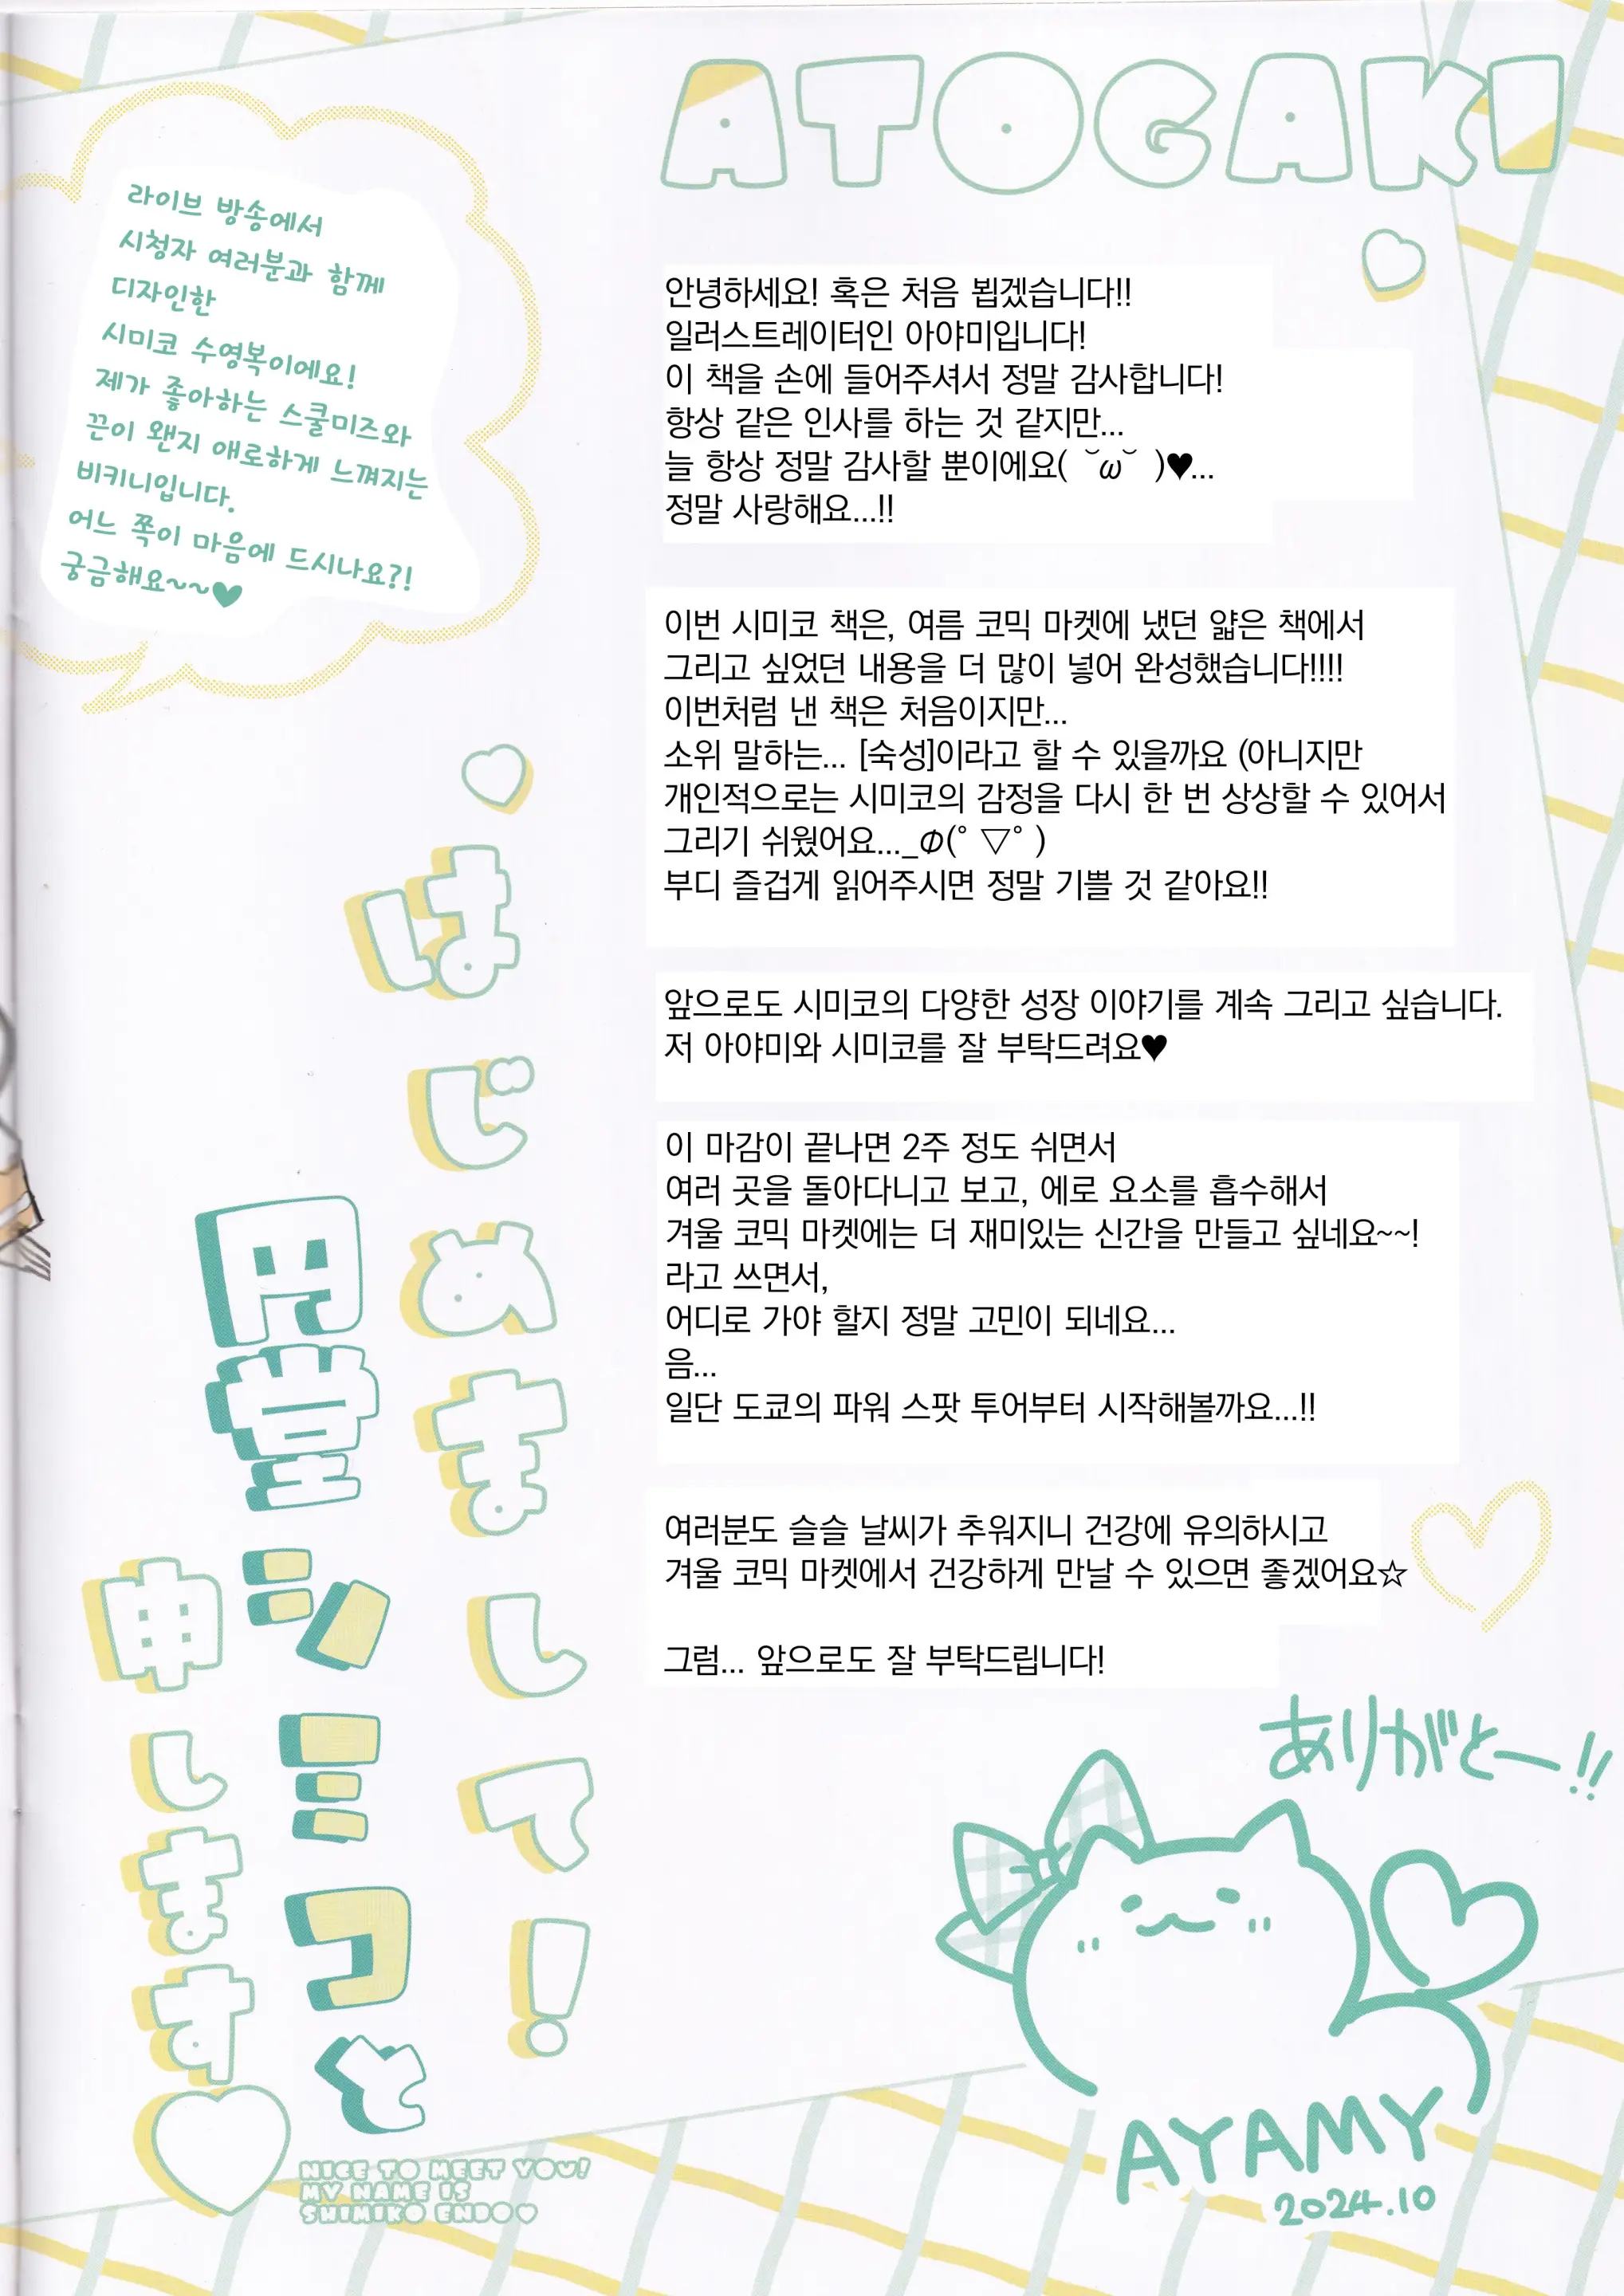 ATOGAKI
라이브 방송에서
시청자 여러분과 함께
디자인한
시미코 수영복이에요!
제가 좋아하는 스쿨미즈와
끈이 왠지 애로하게 느껴지는
비키니입니다.
어느 쪽이 마음에 드시나요?!
궁금해요~~♥
안녕하세요! 혹은 처음 뵙겠습니다!!
일러스트레이터인 아야미입니다!
이 책을 손에 들어주셔서 정말 감사합니다!
항상 같은 인사를 하는 것 같지만...
늘 항상 정말 감사할 뿐이에요( ˘ω˘ )♥...
정말 사랑해요...!!
이번 시미코 책은, 여름 코믹 마켓에 냈던 얇은 책에서
그리고 싶었던 내용을 더 많이 넣어 완성했습니다!!!!
이번처럼 낸 책은 처음이지만...
소위 말하는... [숙성]이라고 할 수 있을까요 (아니지만
개인적으로는 시미코의 감정을 다시 한 번 상상할 수 있어서
그리기 쉬웠어요..._Φ(ﾟ▽ﾟ)
부디 즐겁게 읽어주시면 정말 기쁠 것 같아요!!
앞으로도 시미코의 다양한 성장 이야기를 계속 그리고 싶습니다.
저 아야미와 시미코를 잘 부탁드려요♥
이 마감이 끝나면 2주 정도 쉬면서
여러 곳을 돌아다니고 보고, 에로 요소를 흡수해서
겨울 코믹 마켓에는 더 재미있는 신간을 만들고 싶네요~~!
라고 쓰면서,
어디로 가야 할지 정말 고민이 되네요...
음...
일단 도쿄의 파워 스팟 투어부터 시작해볼까요...!!
여러분도 슬슬 날씨가 추워지니 건강에 유의하시고
겨울 코믹 마켓에서 건강하게 만날 수 있으면 좋겠어요☆
그럼... 앞으로도 잘 부탁드립니다!
はじめまして!
円堂シミコと
申します♡
NICE TO MEET YOU!
MY NAME IS
SHIMIKO ENDO♥
ありがとー!!
AYAMY
2024.10